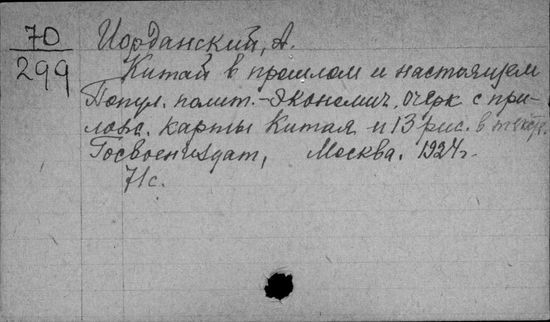 70
299
Иорданский, А.
Китай в прошлом и настоящем
Попул. полит.-экономич. очерк с при-
лож. карты Китая и 13 рис. в тексте.
Госвоениздат, Москва. 1924г.
71с.